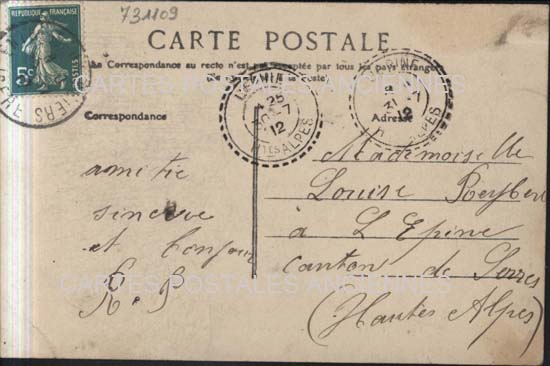 731109
5c
POSTES
CARTE POSTALE
La Correspondance au recto n'est pas acceptée par tous les pays étrangers
Correspondance
Adresse
25
12
Htes ALPES
12
ALPES
CARTES POSTALES ANCIENNES
amitie
sincere
et bonjour
R. B
Mademoiselle
Louise Reybert
à L'Epine
canton de Serres
(Hautes Alpes)
CARTES POSTALES ANCIENNES